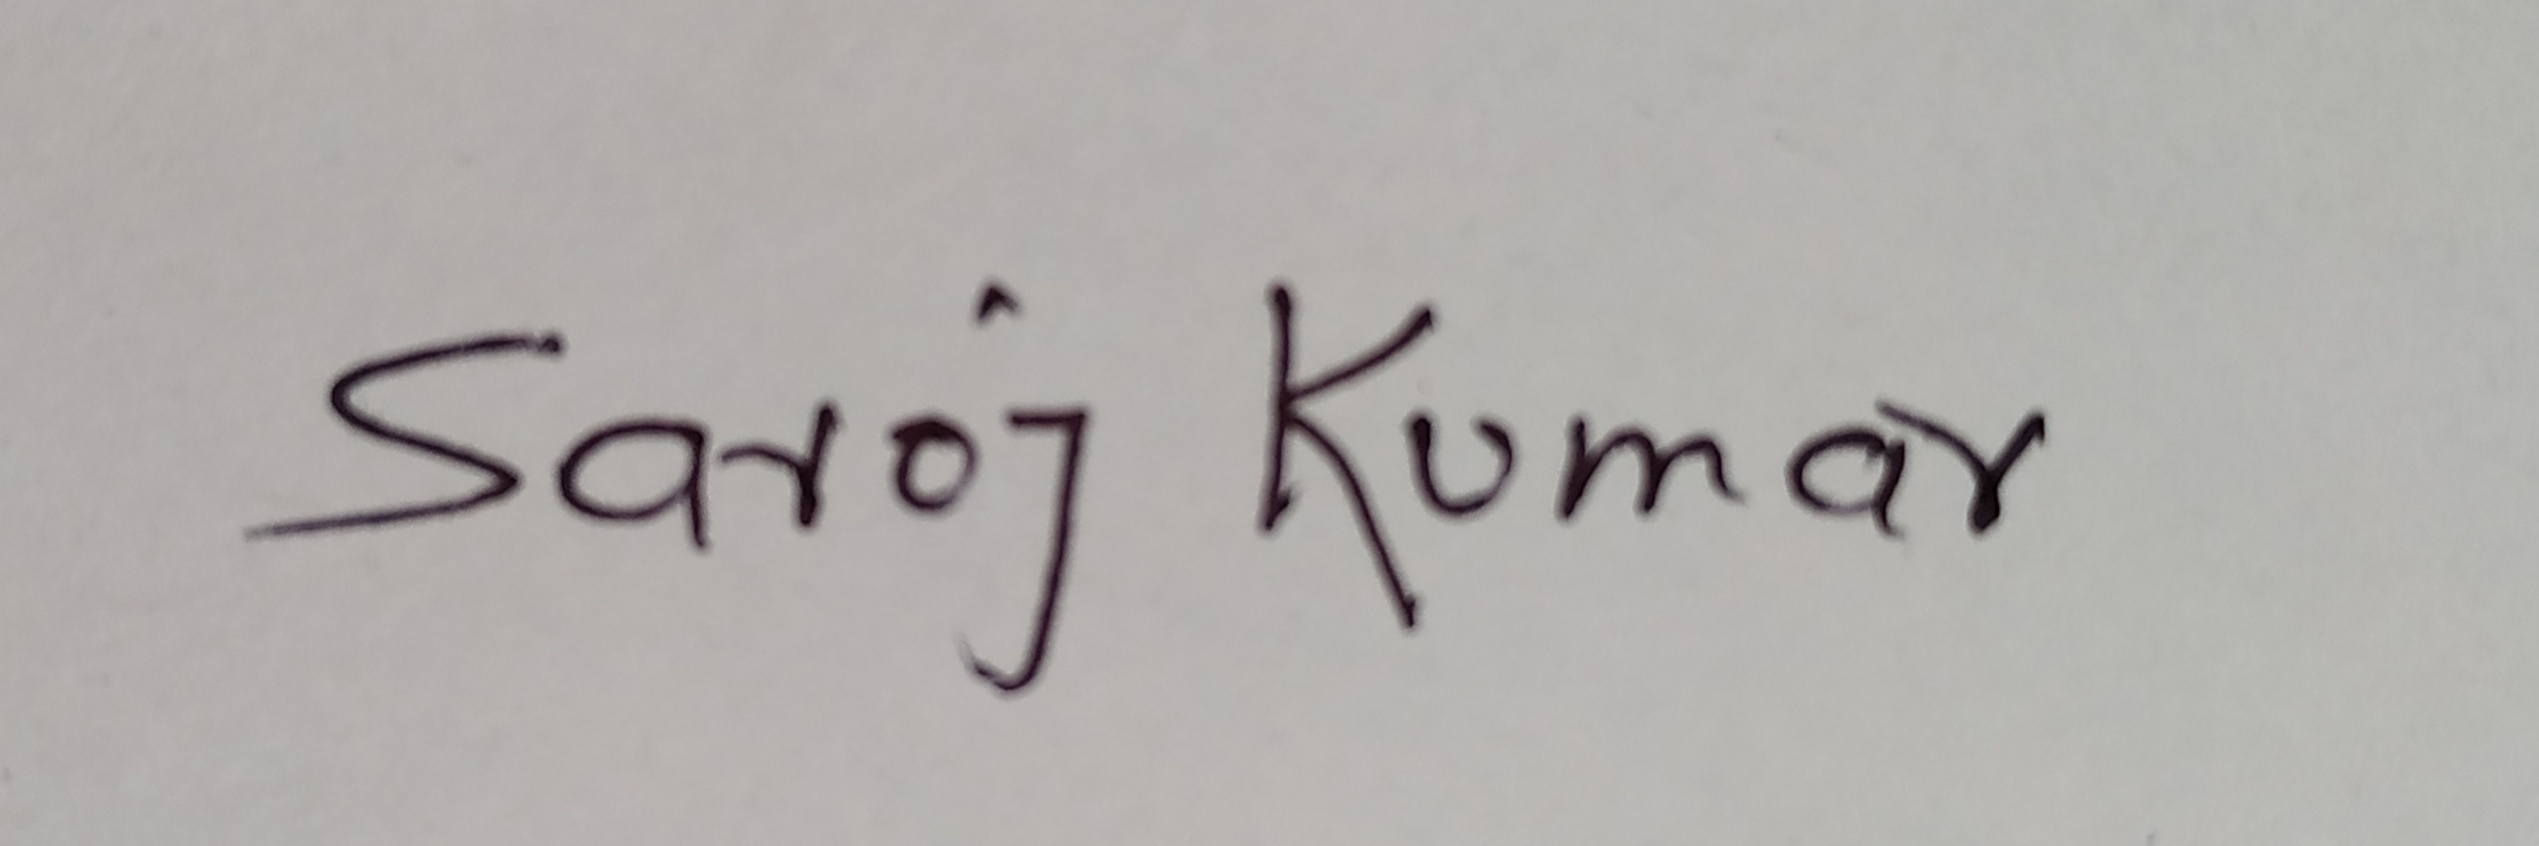 Saroj Kumar